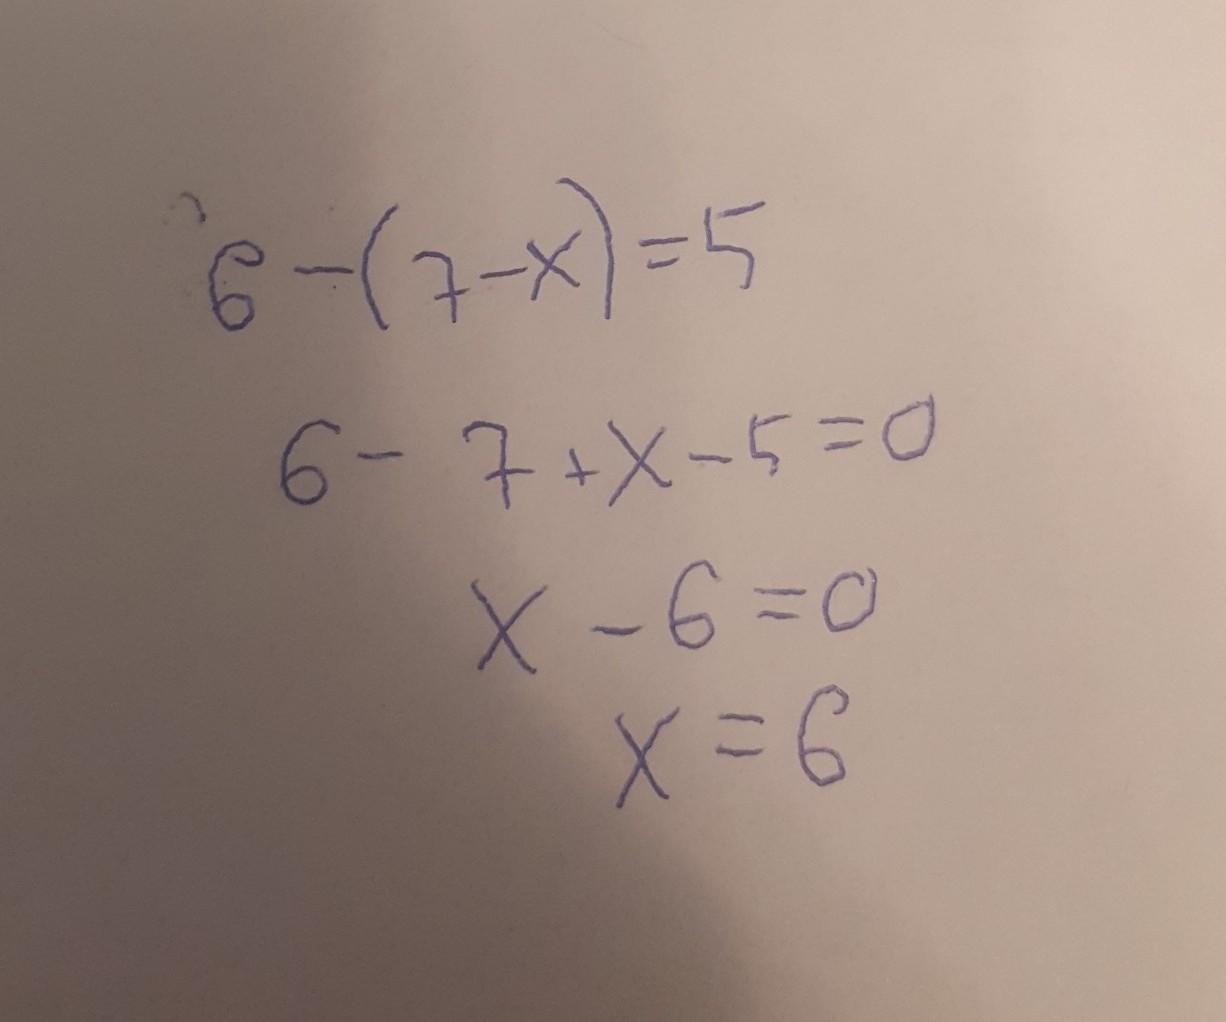 6-(7-x)=5
6-7+x-5=0
x-6=0
x=6